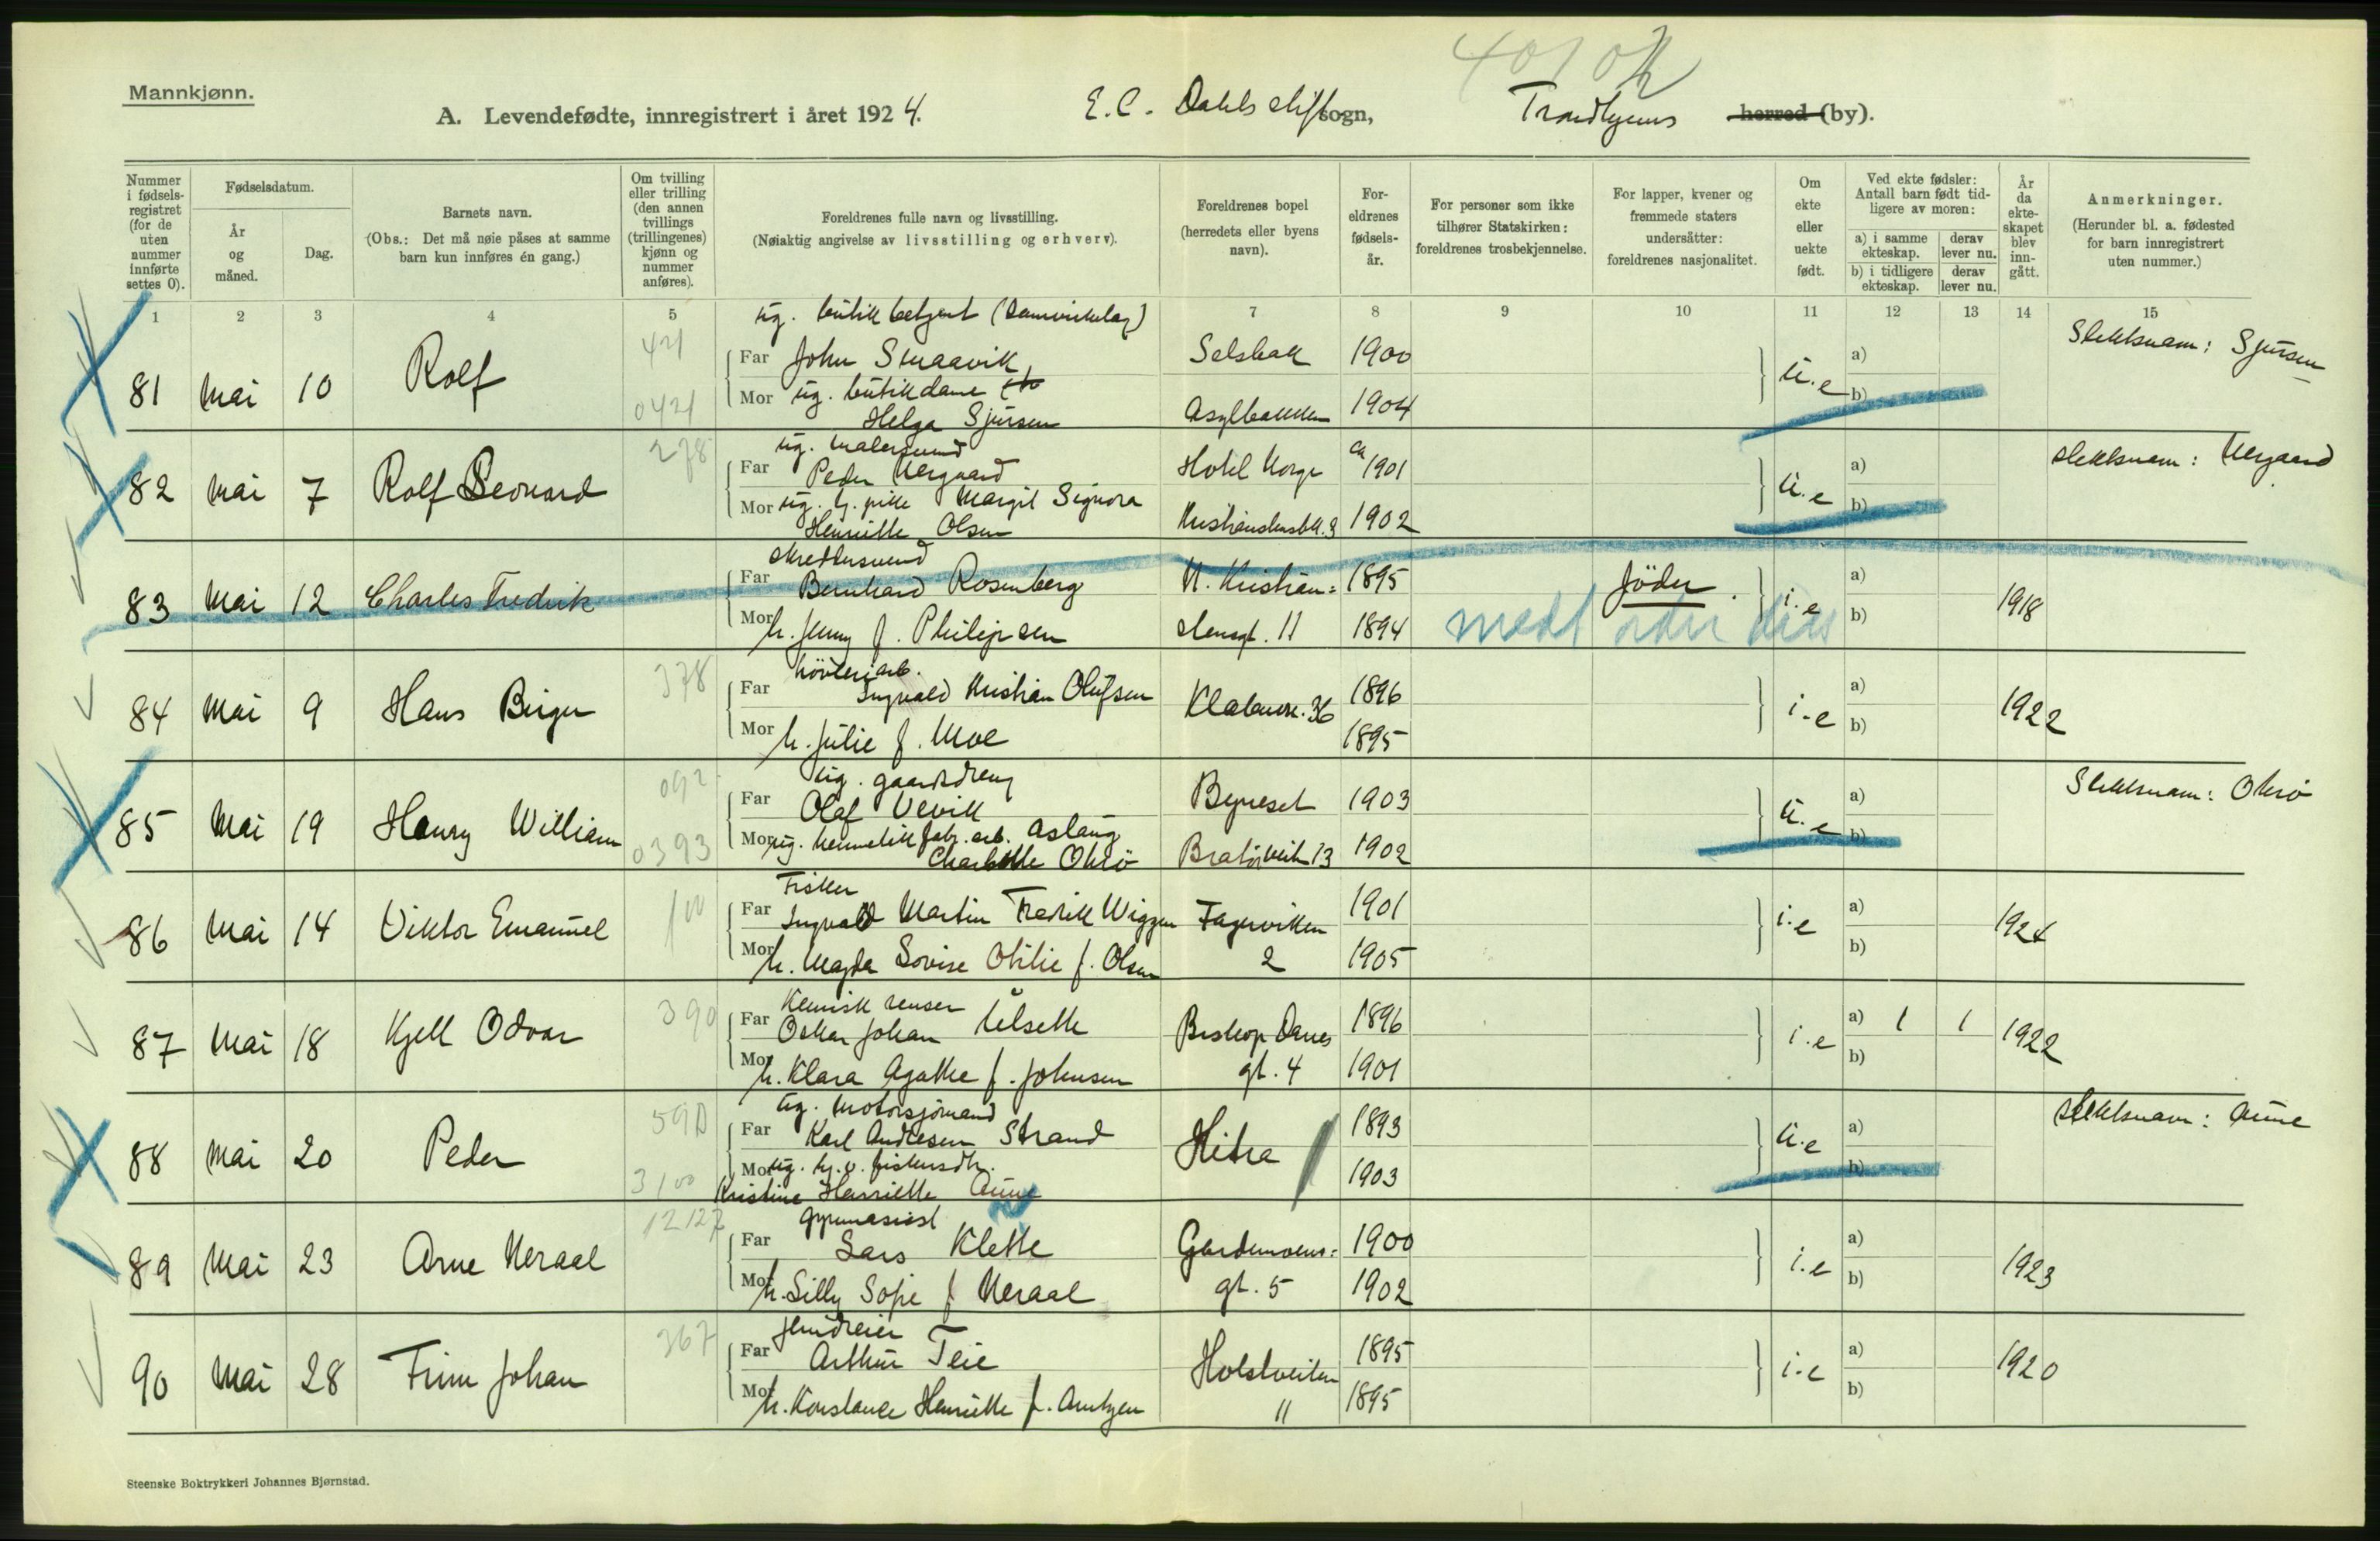 Mannkjønn.
401 0k
A. Levendefødte, innregistrert i året 1924. E. C. Dahls stift sogn, Trondhjems herred (by).
Nummer i fødselsregistret (for de uten nummer innførte settes 0).
Fødselsdatum.
År og måned.
Dag.
Barnets navn.
(Obs.: Det må nøie påses at samme barn kun innføres én gang.)
Om tvilling eller trilling (den annen tvillings (trillingenes) kjønn og nummer anføres).
Foreldrenes fulle navn og livsstilling.
(Nøiaktig angivelse av livsstilling og erhverv).
Foreldrenes bopel (herredets eller byens navn).
Foreldrenes fødselsår.
For personer som ikke tilhører Statskirken: foreldrenes trosbekjennelse.
For lapper, kvener og fremmede staters undersåtter: foreldrenes nasjonalitet.
Om ekte eller uekte født.
Ved ekte fødsler: Antall barn født tidligere av moren:
a) i samme ekteskap. derav lever nu.
b) i tidligere ekteskap. derav lever nu.
År da ekteskapet blev inngått.
Anmerkninger.
(Herunder bl. a. fødested for barn innregistrert uten nummer.)
1 2 3 4 5 7 8 9 10 11 12 13 14 15
ug. butikbetjent (Samvirkelag)
81 Mai 10 Rolf 421 Far John Smaavik Selsbak 1900 u.e a) b) Slektsnam: Sjursen
0421 Mor ug. butikdame
Helga Sjursen Asylbakken 1904
278 ug. malersvend
82 Mai 7 Rolf Leonard Far Peder Nergaard Hotel Norge ca 1901 u.e a) b) slektsnam: Nergaard
Mor ug. hj. pike Margit Signora
Henriette Olsen Kristianstensbk. 3 1902
skreddersvend
83 Mai 12 Charles Fredrik Far Bernhard Rosenberg N. Kristian= 1895 Jöder. i.e a) b) 1918
Mor h. Jenny f. Philipsen stensgt. 11 1894
378 hövleriarb.
84 Mai 9 Hans Birger Far Ingvald Kristian Olufsen Klæbuvei. 36 1896 i.e a) b) 1922
Mor h. Julie f. Moe 1895
092 ug. gaardsdreng
85 Mai 19 Henry William Far Olaf Vevik Byneset 1903 u.e a) b) Slektsnam: Oksö
0393 Mor ug. hermetikfabr. arb. Aslaug
Charlotte Oksö Bratörveit 13 1902
Fisker
86 Mai 14 Viktor Emanuel 100 Far Ingvald Martin Fredrik Wiggen Fagerviken 1901 i.e a) b) 1924
Mor h. Magda Lovise Otilie f. Olsen 2 1905
390 Kemisk renser
87 Mai 18 Kjell Odvar Far Oskar Johan Ulseth Biskop Darres 1896 i.e a) 1 1 b) 1922
Mor h. Klara Agathe f. Johnsen gt. 4 1901
590 ug. motorsjömand
88 Mai 20 Peder Far Karl Andresen Strand Hitra 1893 u.e a) b) slektsnam: Aune
3100 Mor ug. hj. v. fiskersdtr. 1903
Kristine Henriette Aune
12127 gymnasiast
89 Mai 23 Arne Neraal Far Lars Klette Gardemoens= 1900 i.e a) b) 1923
Mor h. Silly Sofie f Neraal gt. 5 1902
367
90 Mai 28 Finn Johan Far Arthur Teie Holstveiten 1895 i.e a) b) 1920
Mor h. Konstance Henriette f. Arntzen 11 1895
Steenske Boktrykkeri Johannes Bjørnstad.